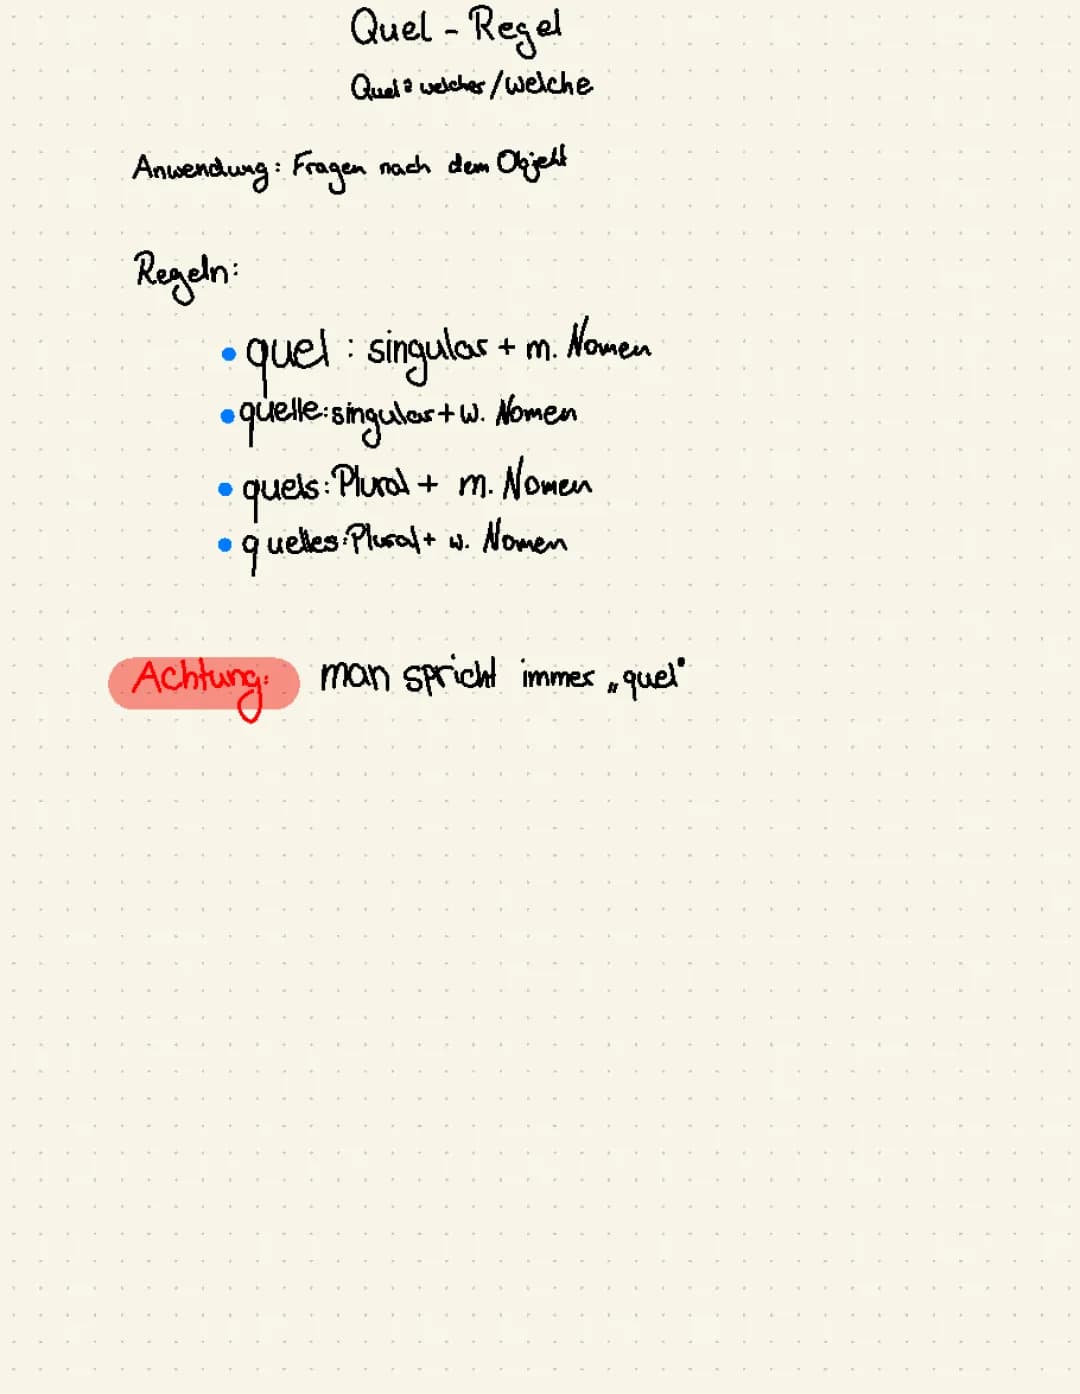 Quel - Regel
Quel ≙ welcher/welche
Anwendung: Fragen nach dem Objekt
Regeln:
• quel : singular + m. Nomen
• quelle: singular + w. Nomen
• quels: Plural + m. Nomen
• quelles: Plural + w. Nomen
Achtung: man spricht immer „quel"